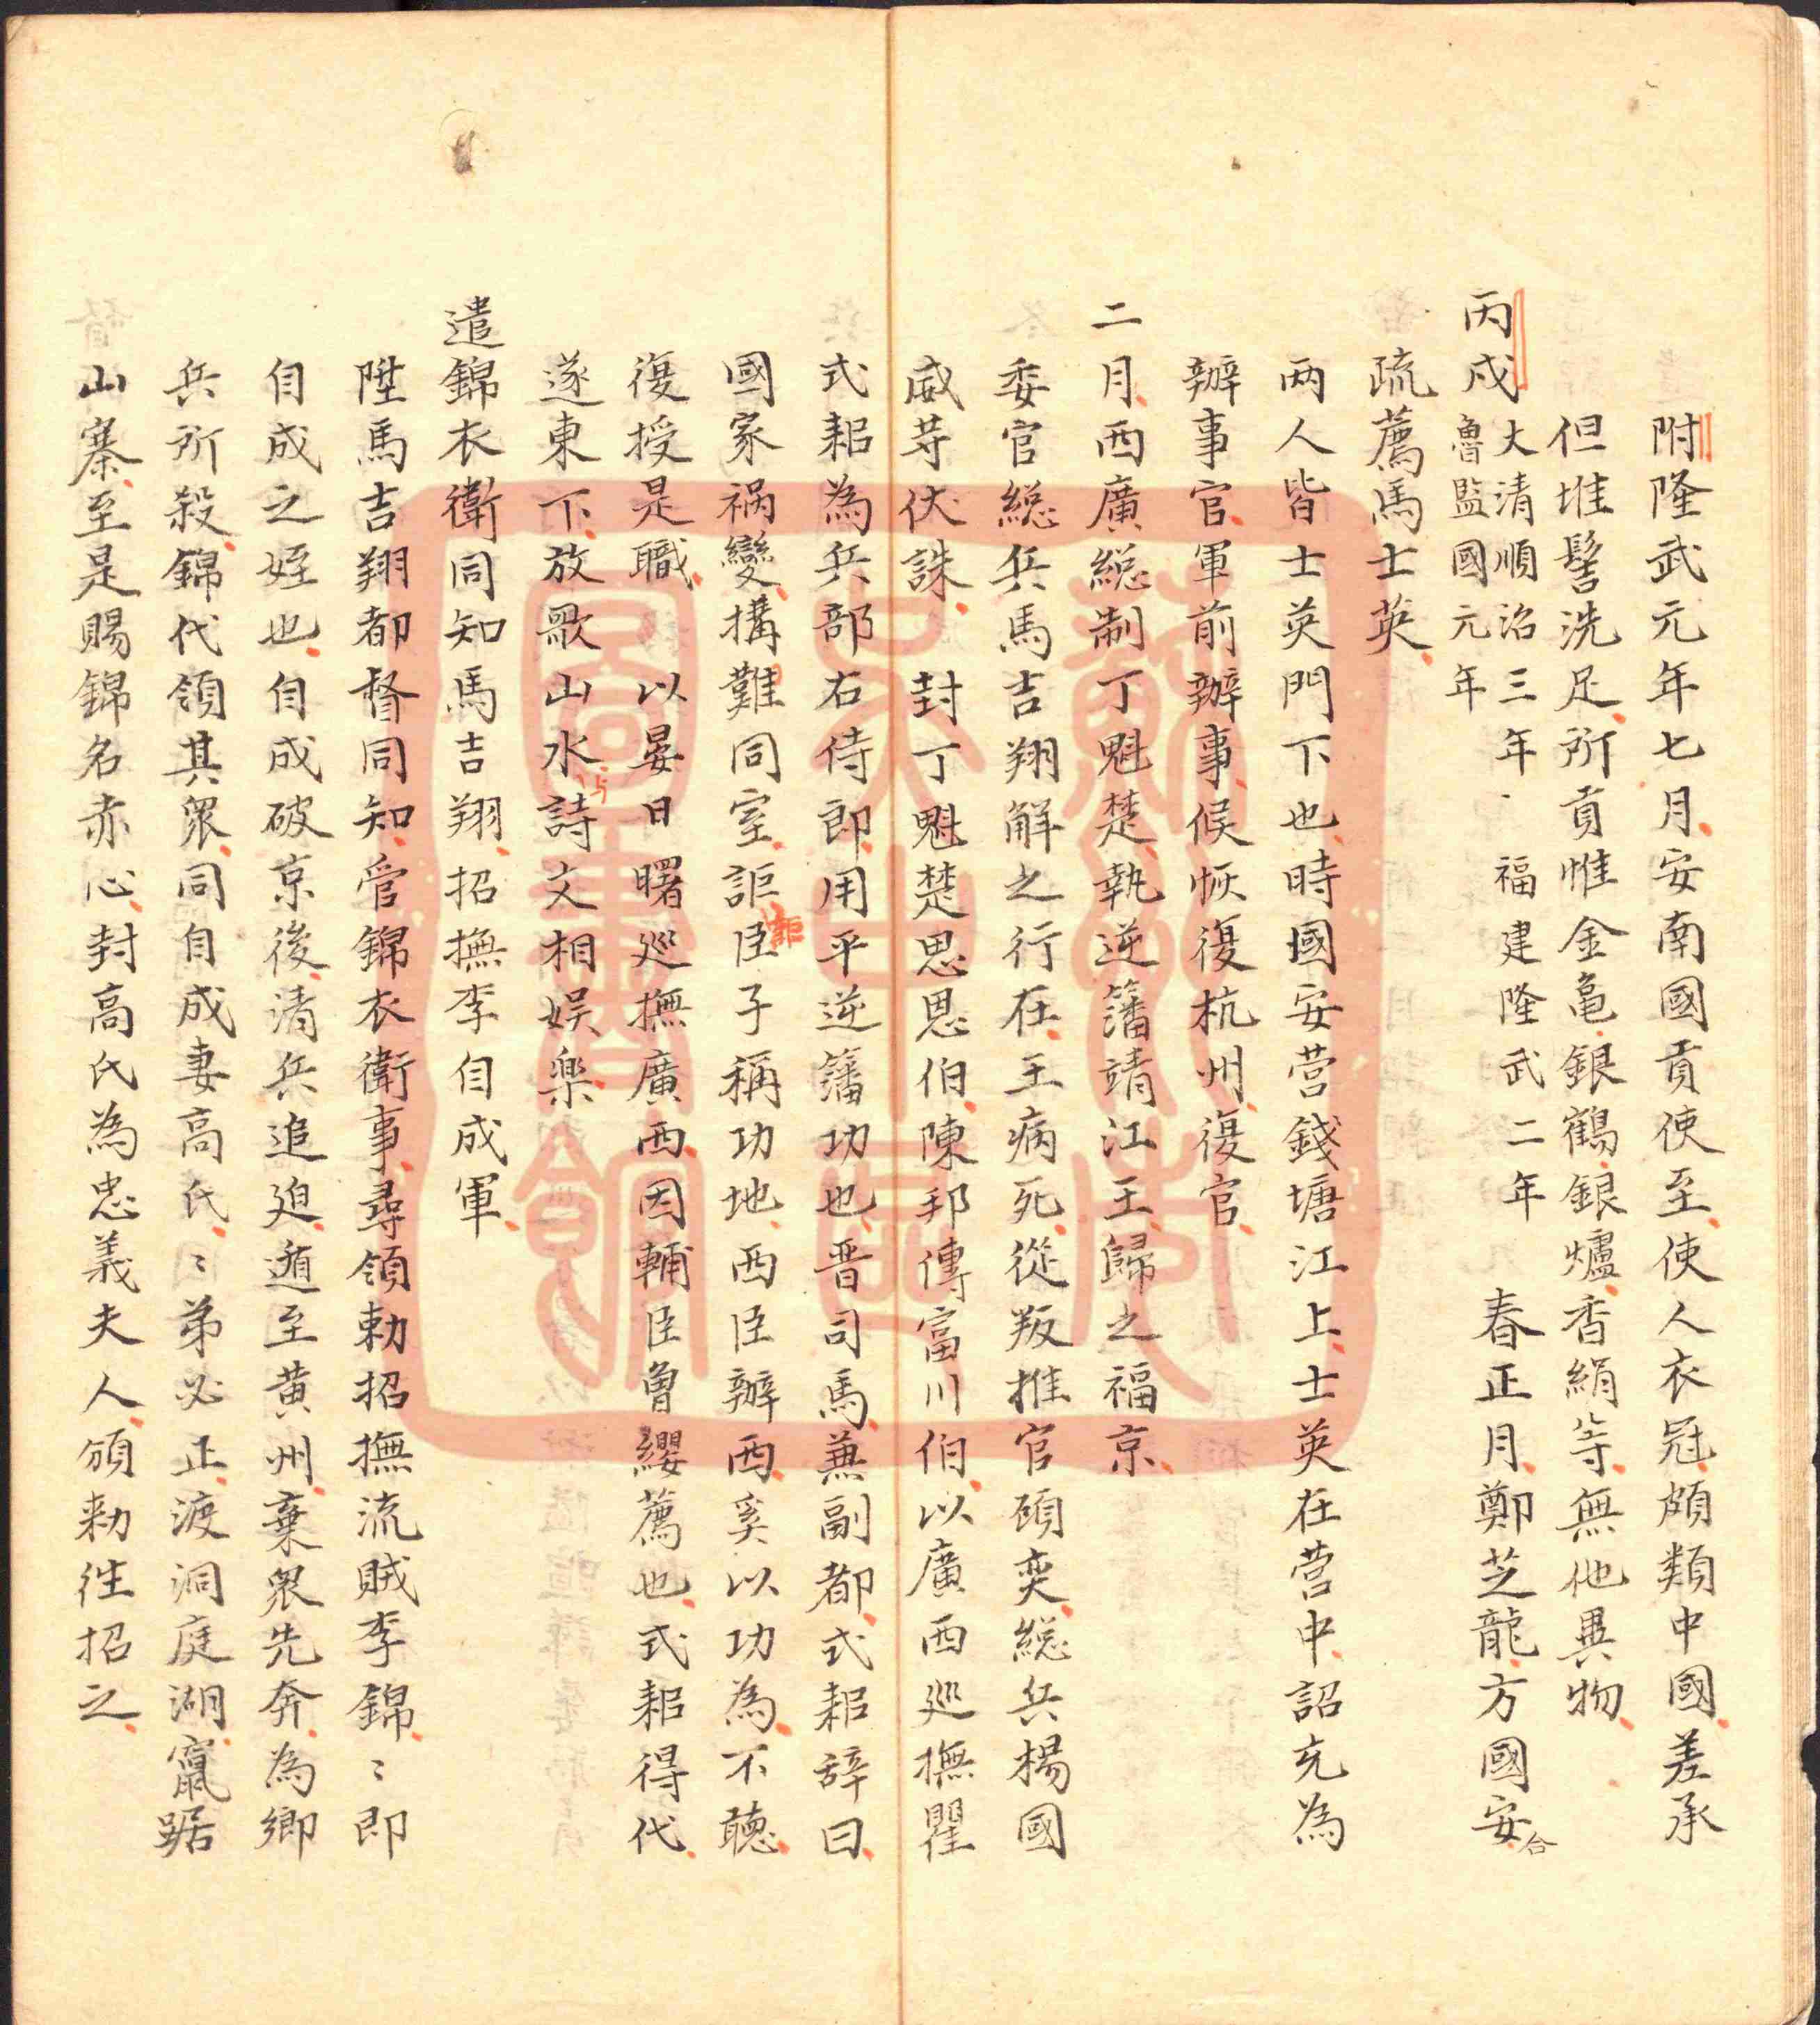 附隆武元年七月安南國貢使至使人衣冠頗類中國差承
但堆髻洗足所貢惟金亀銀鶴銀爐香絹等無他異物
丙戍 大清順治三年 福建隆武二年 春正月鄭芝龍方國安合
魯監國元年
疏薦馬士英
两人皆士英門下也時國安营錢塘江上士英在营中詔充為
辦事官軍前辦事候恢復杭州復官
二月西廣緫制丁魁楚執逆籓靖江王歸之福京
委官緫兵馬吉翔解之行在王病死從叛推官頋奕緫兵楊國
威䓁伏誅 封丁魁楚思恩伯陳邦傳富川伯以廣西巡撫瞿
式耜為兵部右侍郎用平逆籓功也晋司馬兼副都式耜辞曰
國家禍變搆難同室詎臣子稱功地西臣辦西奚以功為不聴
復授是職 以晏日曙巡撫廣西因輔臣曾纓薦也式耜得代
遂東下放歌山水詩文相娯楽
遣錦衣衛同知馬吉翔招撫李自成軍
陞馬吉翔都督同知管錦衣衛事尋領勅招撫流賊李錦〻即
自成之姪也自成破京後清兵追廹遁至黄州棄衆先奔為鄉
兵所殺錦代領其衆同自成妻高氏〻弟必正渡洞庭湖竄踞
山寨至是賜錦名赤心封高氏為忠義夫人頒勅徃招之